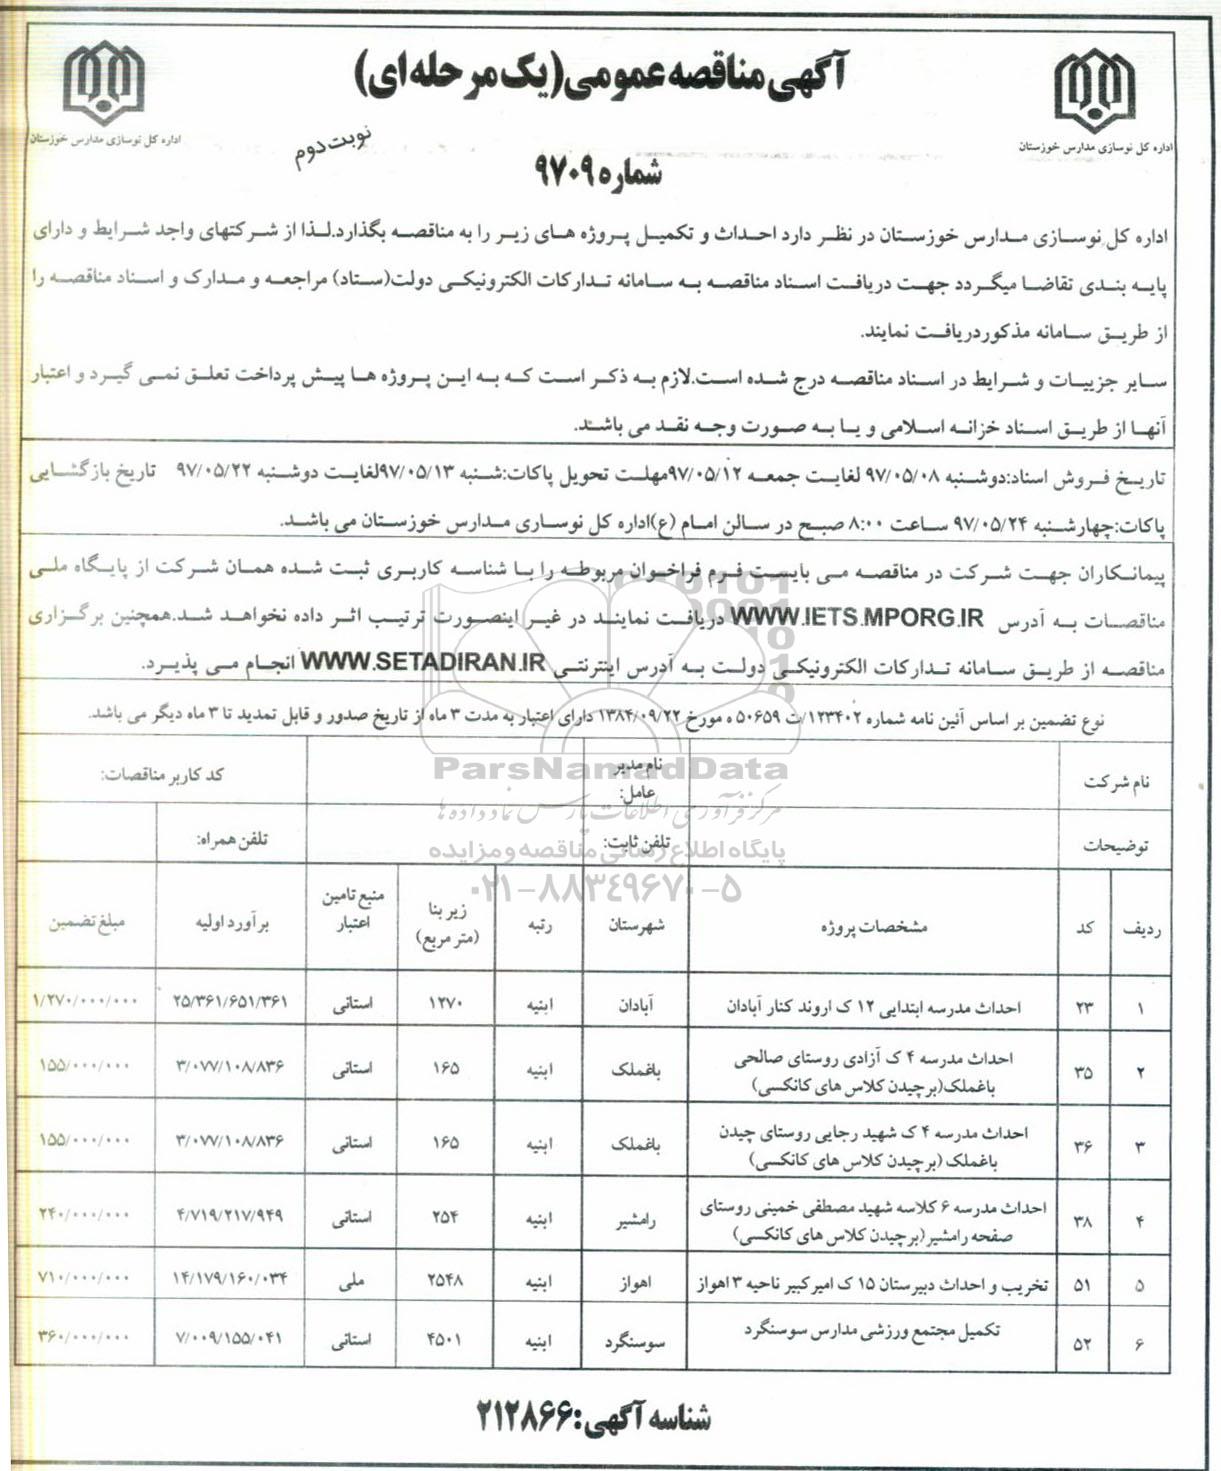 آگهی مناقصه عمومی(یک مرحله ای)
اداره کل نوسازی مدارس خوزستان
اداره کل نوسازی مدارس خوزستان
نوبت دوم
شماره ۹۷۰۹
اداره کل نوسازی مدارس خوزستان در نظر دارد احداث و تکمیل پروژه های زیر را به مناقصه بگذارد.لذا از شرکتهای واجد شرایط و دارای
پایه بندی تقاضا میگردد جهت دریافت اسناد مناقصه به سامانه تدارکات الکترونیکی دولت(ستاد) مراجعه و مدارک و اسناد مناقصه را
از طریق سامانه مذکوردریافت نمایند.
سایر جزییات و شرایط در اسناد مناقصه درج شده است.لازم به ذکر است که به این پروژه ها پیش پرداخت تعلق نمی گیرد و اعتبار
آنها از طریق اسناد خزانه اسلامی و یا به صورت وجه نقد می باشد.
تاریخ فروش اسناد:دوشنبه ۹۷/۰۵/۰۸ لغایت جمعه ۹۷/۰۵/۱۲مهلت تحویل پاکات:شنبه ۹۷/۰۵/۱۳لغایت دوشنبه ۹۷/۰۵/۲۲ تاریخ بازگشایی
پاکات:چهارشنبه ۹۷/۰۵/۲۴ ساعت ۸:۰۰ صبح در سالن امام (ع)اداره کل نوساری مدارس خوزستان می باشد.
پیمانکاران جهت شرکت در مناقصه می بایست فرم فراخوان مربوطه را با شناسه کاربری ثبت شده همان شرکت از پایگاه ملی
مناقصات به آدرس WWW.IETS.MPORG.IR دریافت نمایند در غیر اینصورت ترتیب اثر داده نخواهد شد.همچنین برگزاری
مناقصه از طریق سامانه تدارکات الکترونیکی دولت به آدرس اینترنتی WWW.SETADIRAN.IR انجام می پذیرد.
نوع تضمین بر اساس آئین نامه شماره ۱۲۳۴۰۲/ت ۵۰۶۵۹ ه مورخ ۱۳۸۴/۰۹/۲۲ دارای اعتبار به مدت ۳ ماه از تاریخ صدور و قابل تمدید تا ۳ ماه دیگر می باشد.
نام شرکت نام مدیر عامل: کد کاربر مناقصات:
توضیحات تلفن ثابت: تلفن همراه:
ردیف کد مشخصات پروژه شهرستان رتبه زیر بنا (متر مربع) منبع تامین اعتبار برآورد اولیه مبلغ تضمین
۱ ۲۳ احداث مدرسه ابتدایی ۱۲ ک اروند کنار آبادان آبادان ابنیه ۱۲۷۰ استانی ۲۵/۳۶۱/۶۵۱/۳۶۱ ۱/۲۷۰/۰۰۰/۰۰۰
۲ ۳۵ احداث مدرسه ۴ ک آزادی روستای صالحی باغملک(برچیدن کلاس های کانکسی) باغملک ابنیه ۱۶۵ استانی ۳/۰۷۷/۱۰۸/۸۳۶ ۱۵۵/۰۰۰/۰۰۰
۳ ۳۶ احداث مدرسه ۴ ک شهید رجایی روستای چیدن باغملک (برچیدن کلاس های کانکسی) باغملک ابنیه ۱۶۵ استانی ۳/۰۷۷/۱۰۸/۸۳۶ ۱۵۵/۰۰۰/۰۰۰
۴ ۳۸ احداث مدرسه ۶ کلاسه شهید مصطفی خمینی روستای صفحه رامشیر(برچیدن کلاس های کانکسی) رامشیر ابنیه ۲۵۴ استانی ۴/۷۱۹/۲۱۷/۹۴۹ ۲۴۰/۰۰۰/۰۰۰
۵ ۵۱ تخریب و احداث دبیرستان ۱۵ ک امیرکبیر ناحیه ۳ اهواز اهواز ابنیه ۲۵۴۸ ملی ۱۴/۱۷۹/۱۶۰/۰۳۴ ۷۱۰/۰۰۰/۰۰۰
۶ ۵۲ تکمیل مجتمع ورزشی مدارس سوسنگرد سوسنگرد ابنیه ۴۵۰۱ استانی ۷/۰۰۹/۱۵۵/۰۴۱ ۳۶۰/۰۰۰/۰۰۰
شناسه آگهی:۲۱۲۸۶۶
ParsNamadData
مرکز فرآوری اطلاعات پارس نماد داده ها
پایگاه اطلاع رسانی مناقصه و مزایده
۰۲۱-۸۸۳۴۹۶۷۰-۵